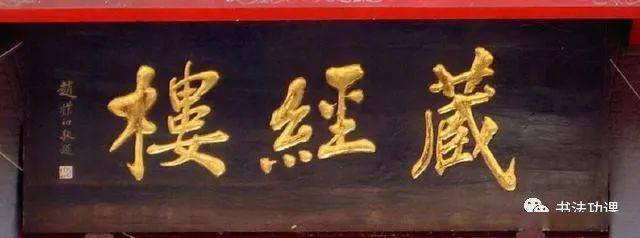 藏經樓
趙敬題
书法功课